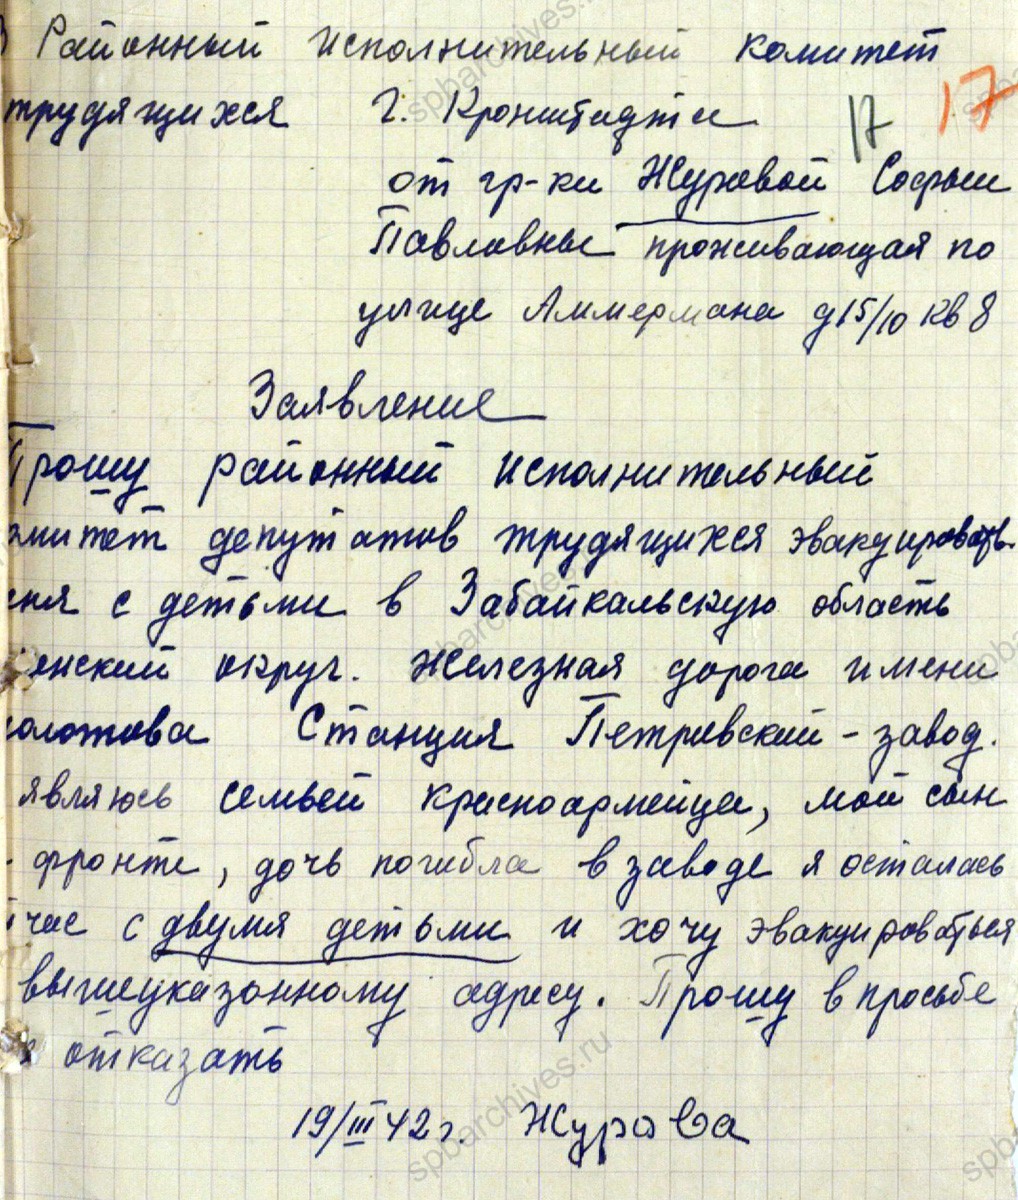 В Районный исполнительный комитет
трудящихся г. Кронштадта 17 17
от гр-ки Журавой Софьи
Павловны проживающая по
улице Аммермана д 15/10 кв 8
Заявление
Прошу районный исполнительный
омитет депутатов трудящихся эвакуировать
еня с детьми в Забайкальскую область
енский округ. Железная дорога имени
олотова Станция Петровский-завод.
являюсь семьей красноармейца, мой сын
фронте, дочь погибла в заводе я осталась
йчас с двумя детьми и хочу эвакуироваться
вышеуказанному адресу. Прошу в просьбе
отказать
19/III 42 г. Журава
spbarchives.ru